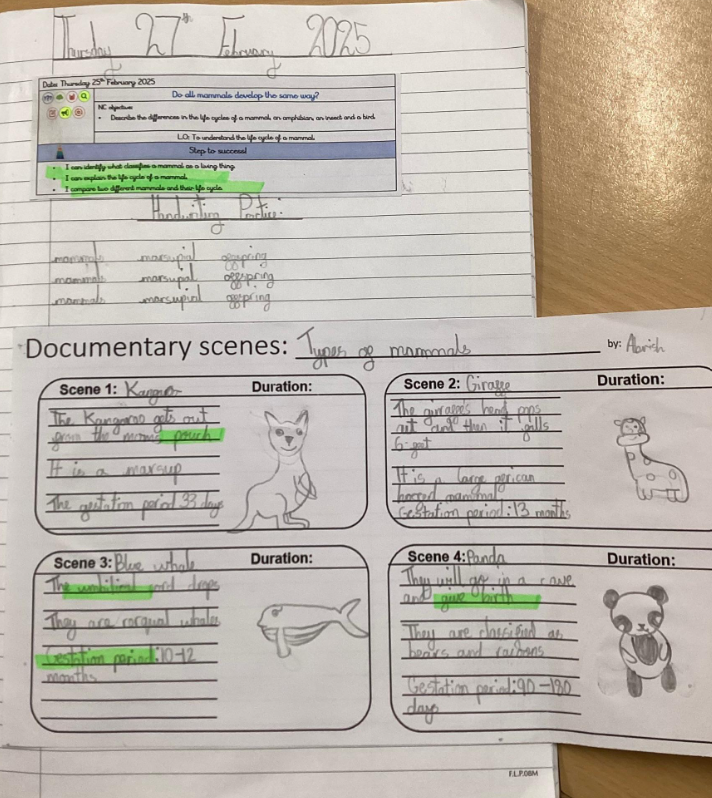 Thursday 27th February 2025
Date: Thursday 25th February 2025
Do all mammals develop the same way?
NC objective:
• Describe the differences in the life cycles of a mammal, an amphibian, an insect and a bird.
LO: To understand the life cycle of a mammal.
Step to success!
• I can identify what classifies a mammal as a living thing.
• I can explain the life cycle of a mammal.
• I compare two different mammals and their life cycle.
Handwriting
mammals marsupial offspring
mammals marsupal offspring
mammals marsupial offspring
Documentary scenes: Types of mammals by:
Scene 1: Duration:
The Kangaroo gets out
from the moms pouch
It is a marsup
The gestation period 33 days
Scene 2: Giraffe Duration:
The giraffe's head pops
out and then it falls
6-foot
It is a large african
horred mammal
Gestation period: 13 months
Scene 3: Blue whale Duration:
The umbilical cord drops
They are rorqual whales
Gestation period: 10-12
months
Scene 4: Panda Duration:
They will go in a cave
and give birth
They are classified as
bears and
Gestation period: 90-180
days
F.L.P.08M